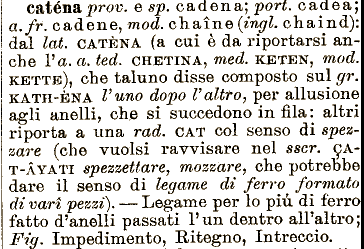 caténa prov. e sp. cadena; port. cadea;
a. fr. cadene, mod. chaîne (ingl. chaind):
dal lat. CATÈNA (a cui è da riportarsi an-
che l'a. a. ted. CHETINA, med. KETEN, mod.
KETTE), che taluno disse composto sul gr.
KATH-ÈNA l'uno dopo l'altro, per allusione
agli anelli, che si succedono in fila: altri
riporta a una rad. CAT col senso di spez-
zare (che vuolsi ravvisare nel sscr. ÇA-
T-ÂYATI spezzettare, mozzare, che potrebbe
dare il senso di legame di ferro formato
di varî pezzi). — Legame per lo più di ferro
fatto d'anelli passati l'un dentro all'altro;
Fig. Impedimento, Ritegno, Intreccio.